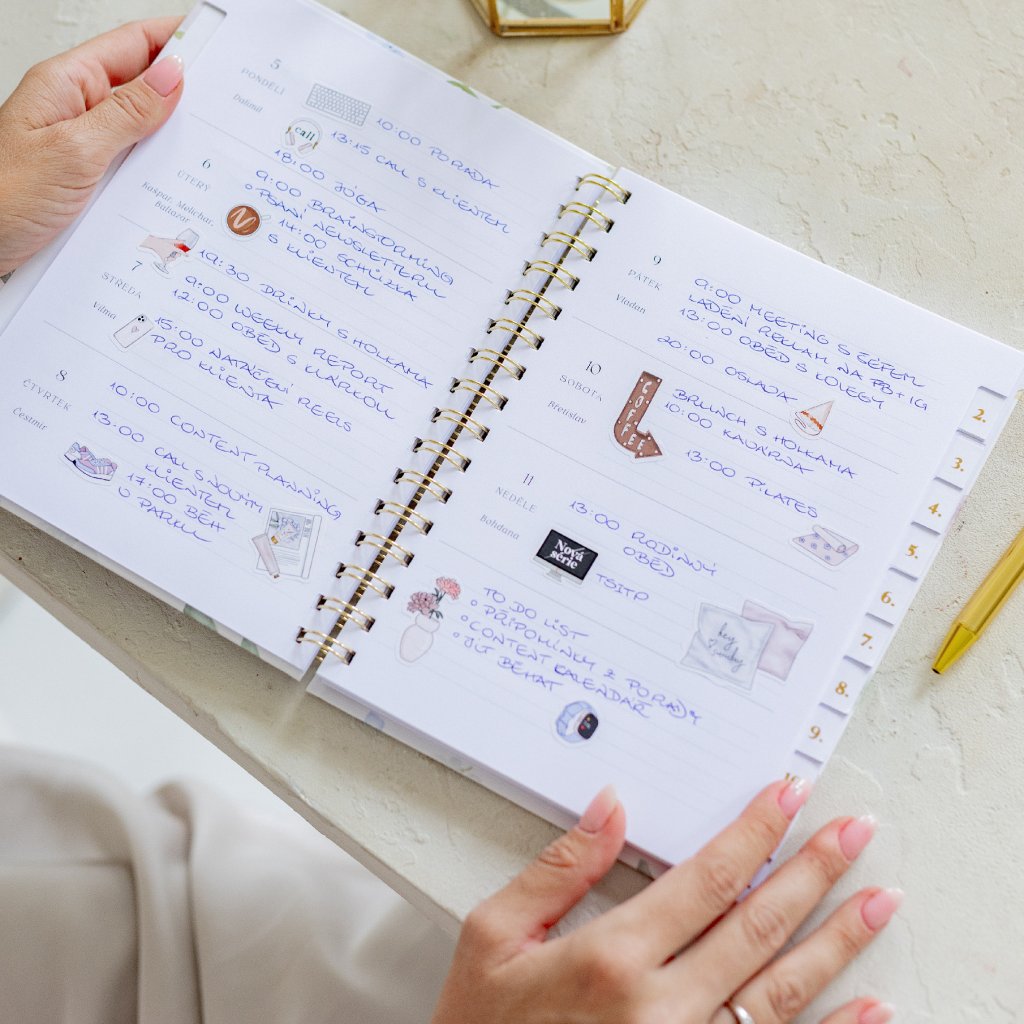 5
PONDĚLÍ
Dalimil
10:00 PORADA
call
13:15 CALL S KLIENTEM
18:00 JÓGA
6
ÚTERÝ
Kašpar, Melichar,
Baltazar
9:00 BRAINSTORMING
PSANÍ NEWSLETTERU
14:00 SCHŮZKA
S KLIENTEM
19:30 DRINKY S HOLKAMA
7
STŘEDA
Vilma
9:00 WEEKLY REPORT
12:00 OBĚD S KLÁRKOU
15:00 NATÁČENÍ REELS
PRO KLIENTA
8
ČTVRTEK
Čestmír
10:00 CONTENT PLANNING
13:00 CALL S NOVÝM
KLIENTEM
17:00 BĚH
V PARKU
9
PÁTEK
Vladan
9:00 MEETING S ŠÉFEM
LADĚNÍ REKLAM NA FB+IG
13:00 OBĚD S KOLEGY
20:00 OSLAVA
10
SOBOTA
Břetislav
COFFEE
BRUNCH S HOLKAMA
10:00 KAVÁRNA
13:00 PILATES
11
NEDĚLE
Bohdana
13:00 RODINNÝ
OBĚD
Nová
série
TSITP
TO DO LIST
PŘIPOMÍNKY Z PORADY
CONTENT KALENDÁŘ
JÍT BĚHAT
hey
2.
3.
4.
5.
6.
7.
8.
9.
10